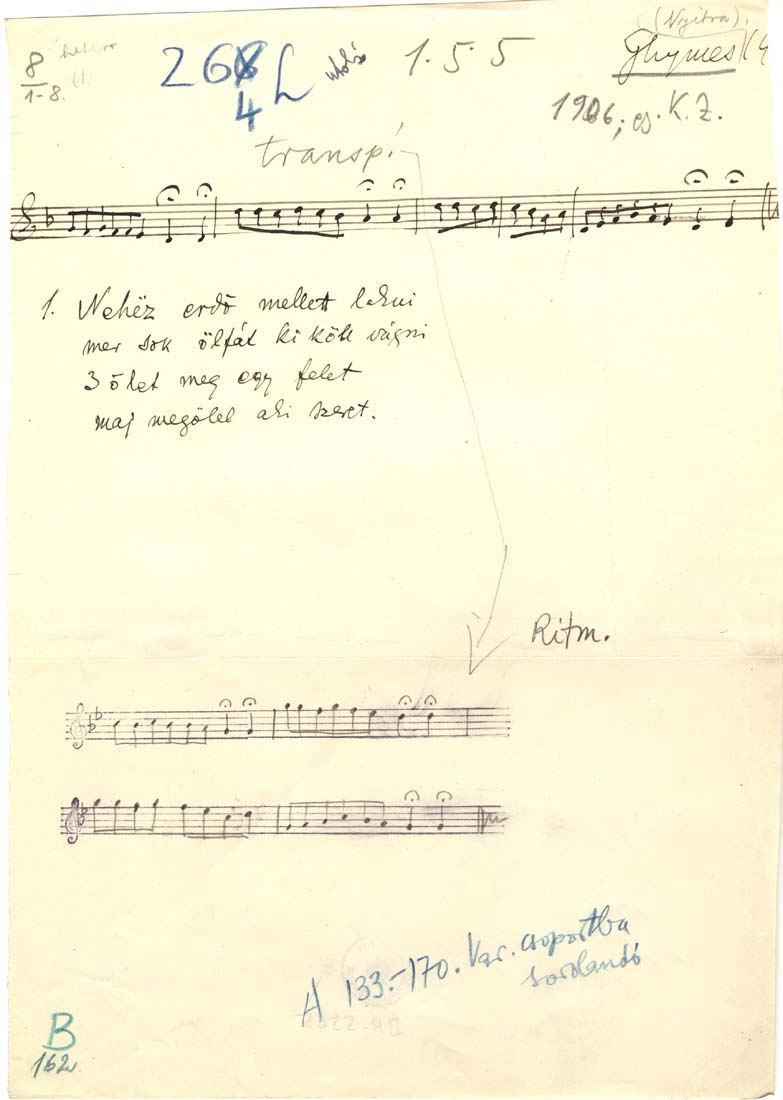 8
1-8.
264 L
utolsó
1. 5. 5
(Nyitra).
Ghymes
1906; gy. K. Z.
transp.
1. Nehëz erdő mellett lakni
mer sok ölfát ki köll vágni
3 ölet meg egy felet
maj megölel aki szeret.
Ritm.
A 133.-170. Var. csoportba
sorolandó
B
162.